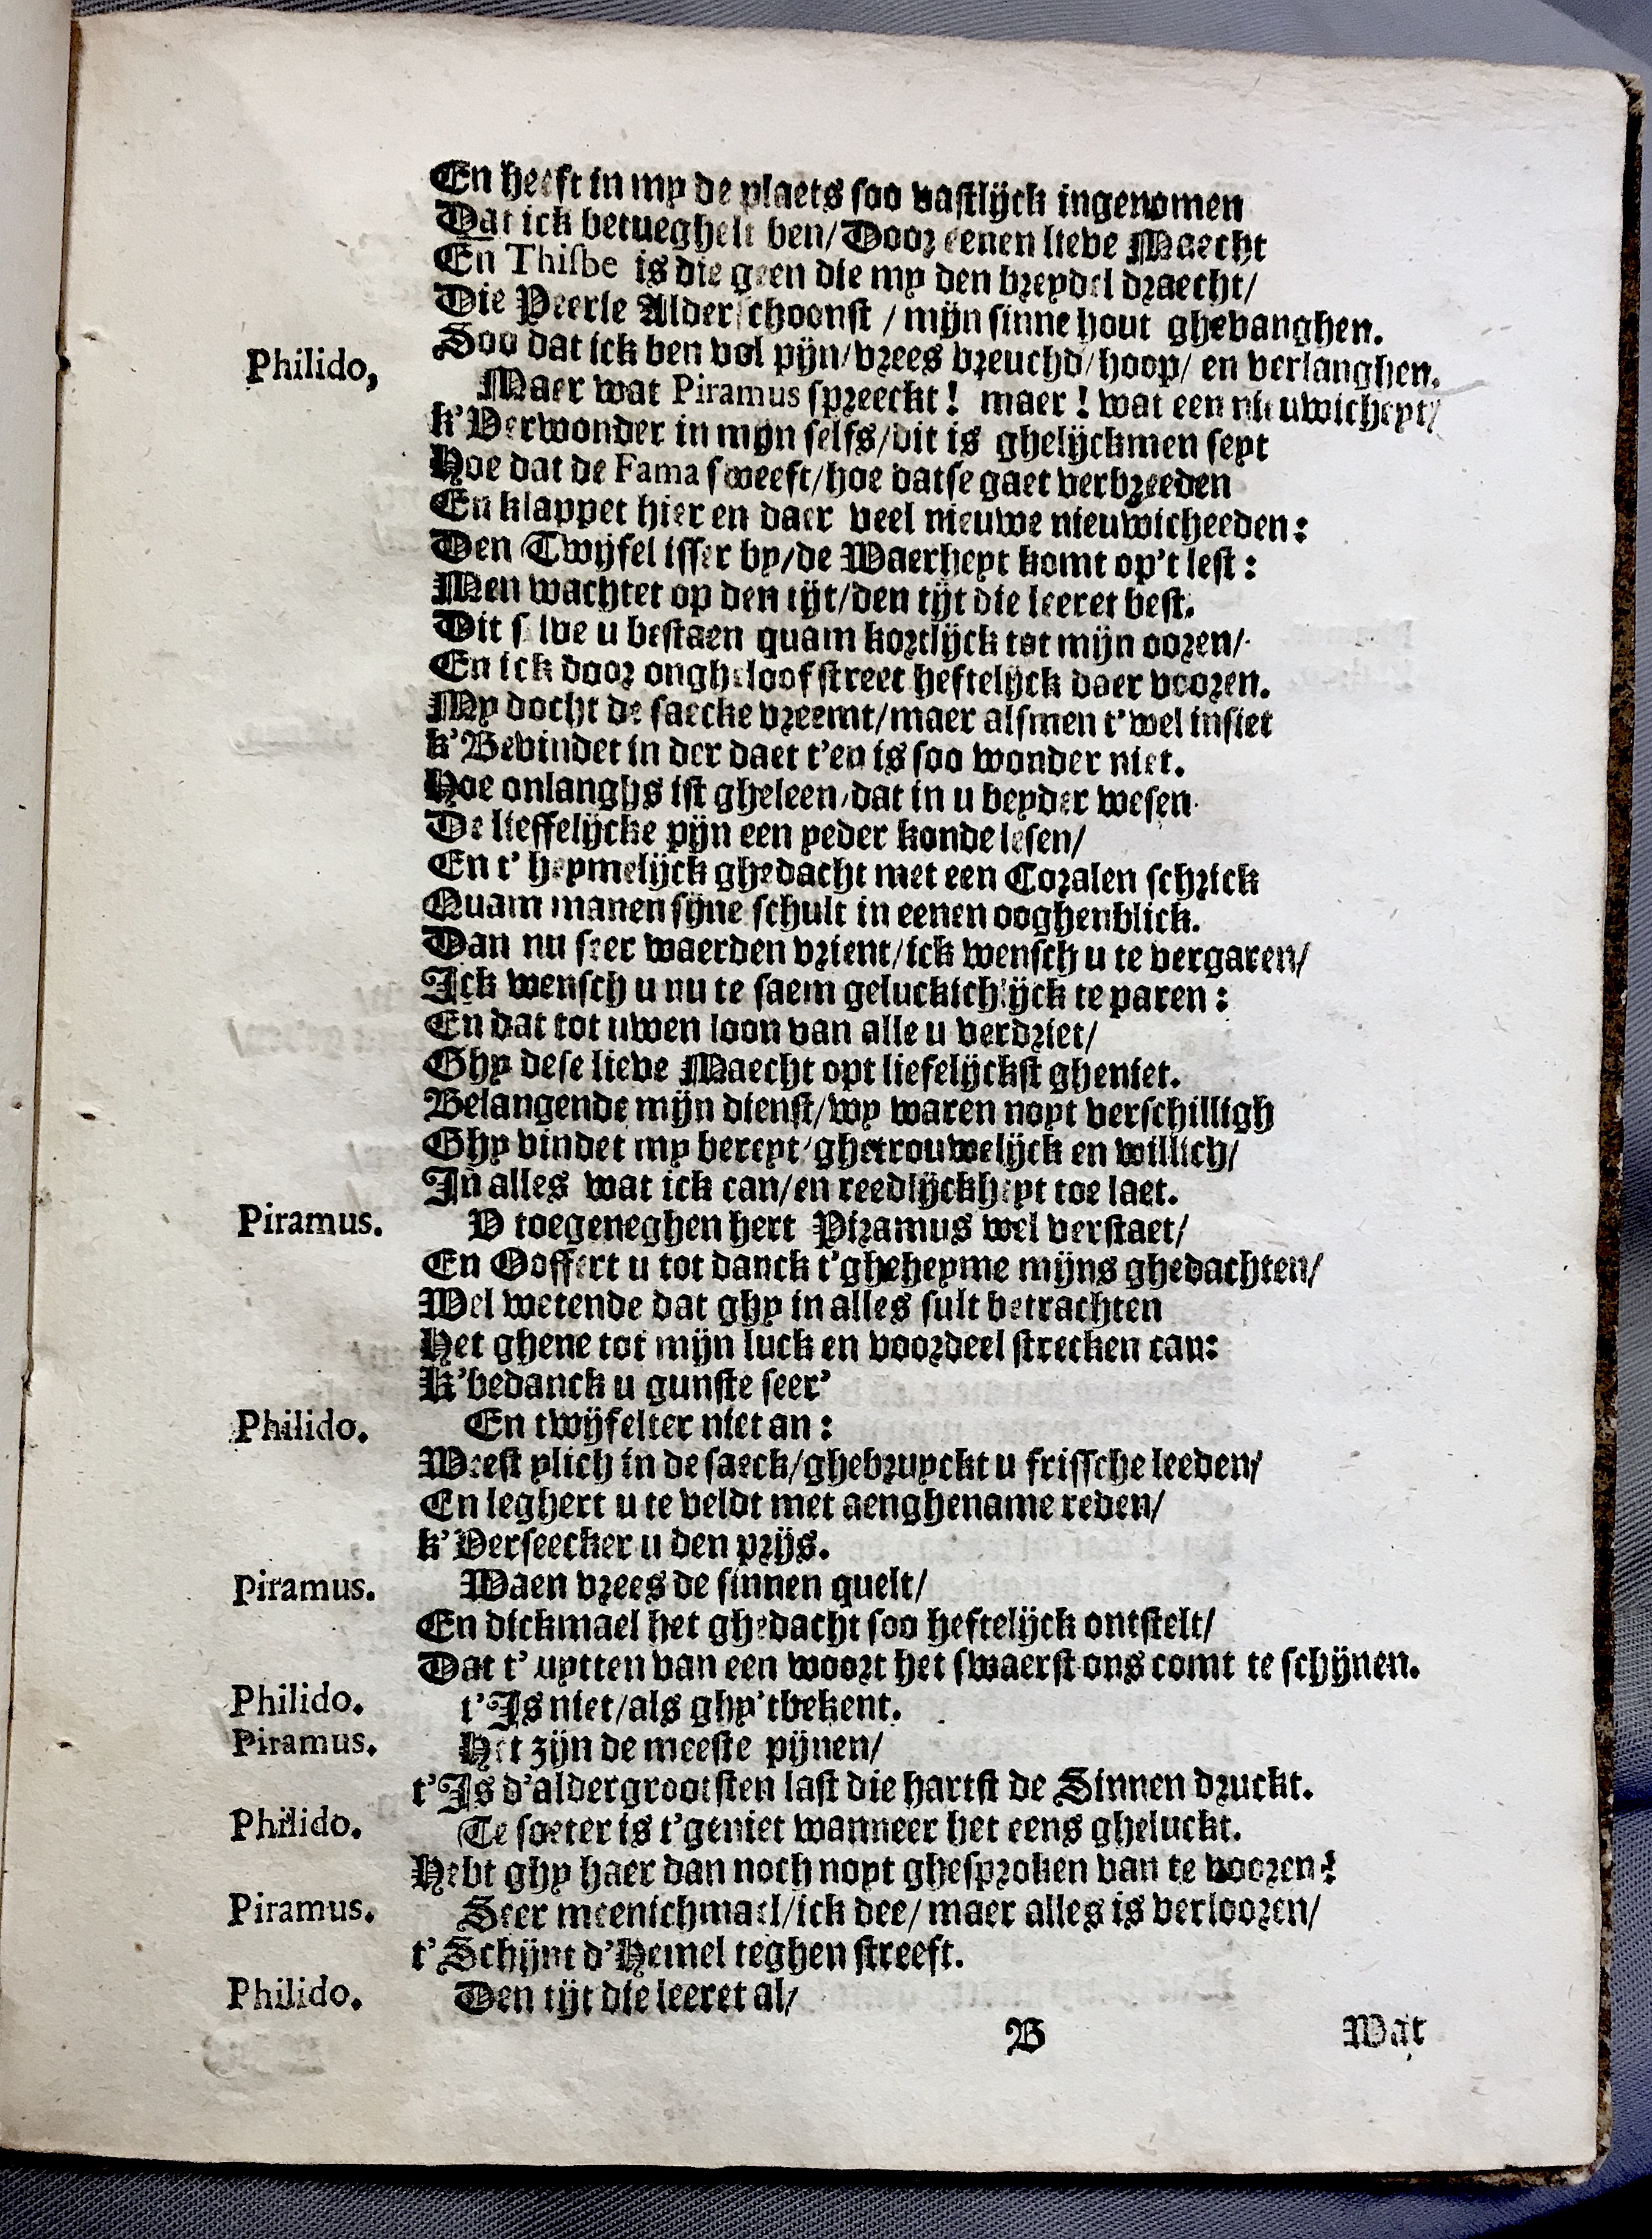 En heeft in my de plaets soo vastlijck ingenomen
Dat ick betueghelt ben/ Door eenen lieve Maecht
En Thisbe is die geen die my den breydel draecht/
Die Peerle Alderschoonst / mijn sinne hout ghevanghen.
Soo dat ick ben vol pijn/ vrees vreuchd/ hoop/ en verlanghen.
Philido, Maer wat Piramus spreeckt! maer! wat een nieuwicheyt/
k'Verwonder in mijn selfs/ dit is ghelijckmen seyt
Hoe dat de Fama sweeft/ hoe datse gaet verbreeden
En klappet hier en daer veel nieuwe nieuwicheeden:
Den Twijfel isser by/ de Waerheyt komt op't lest:
Men wachtet op den tijt/ den tijt die leeret best.
Dit selve u bestaen quam kortlijck tot mijn ooren/
En ick door ongheloof street heftelijck daer vooren.
My docht de saecke vreemt/ maer alsmen t'wel insiet
k'Bevindet in der daet t'en is soo wonder niet.
Hoe onlanghs ist gheleen/ dat in u beyder wesen
De lieffelijcke pijn een yeder konde lesen/
En t' heymelijck ghedacht met een Coralen schrick
Quam manen sijne schult in eenen ooghenblick.
Dan nu seer waerden vrient/ ick wensch u te vergaren/
Ick wensch u nu te saem geluckichlijck te paren:
En dat tot uwen loon van alle u verdriet/
Ghy dese lieve Maecht opt liefelijckst gheniet.
Belangende mijn dienst/ wy waren noyt verschilligh
Ghy vindet my bereyt/ ghetrouwelijck en willich/
In alles wat ick can/ en reedlijckheyt toe laet.
Piramus. V toegeneghen hert Piramus wel verstaet/
En Ooffert u tot danck t'gheheyme mijns ghedachten/
Wel wetende dat ghy in alles sult betrachten
Het ghene tot mijn luck en voordeel strecken can:
K'bedanck u gunste seer'
Philido. En twijfelter niet an:
Weest vlich in de saeck/ ghebruyckt u frissche leeden/
En leghert u te veldt met aenghename reden/
k'Verseecker u den prijs.
Piramus. Waen vrees de sinnen quelt/
En dickmael het ghedacht soo heftelijck ontstelt/
Dat t' uytten van een woort het swaerst ons comt te schijnen.
Philido. t'Is niet/ als ghy'tbekent.
Piramus. Het zijn de meeste pijnen/
t'Is d'aldergrootsten last die hartst de Sinnen druckt.
Philido. Te soeter is t'geniet wanneer het eens gheluckt.
Hebt ghy haer dan noch noyt ghesproken van te vooren?
Piramus. Seer meenichmael/ ick dee/ maer alles is verlooren/
t'Schijnt d'Hemel teghen streeft.
Philido. Den tijt die leeret al/
B Wat